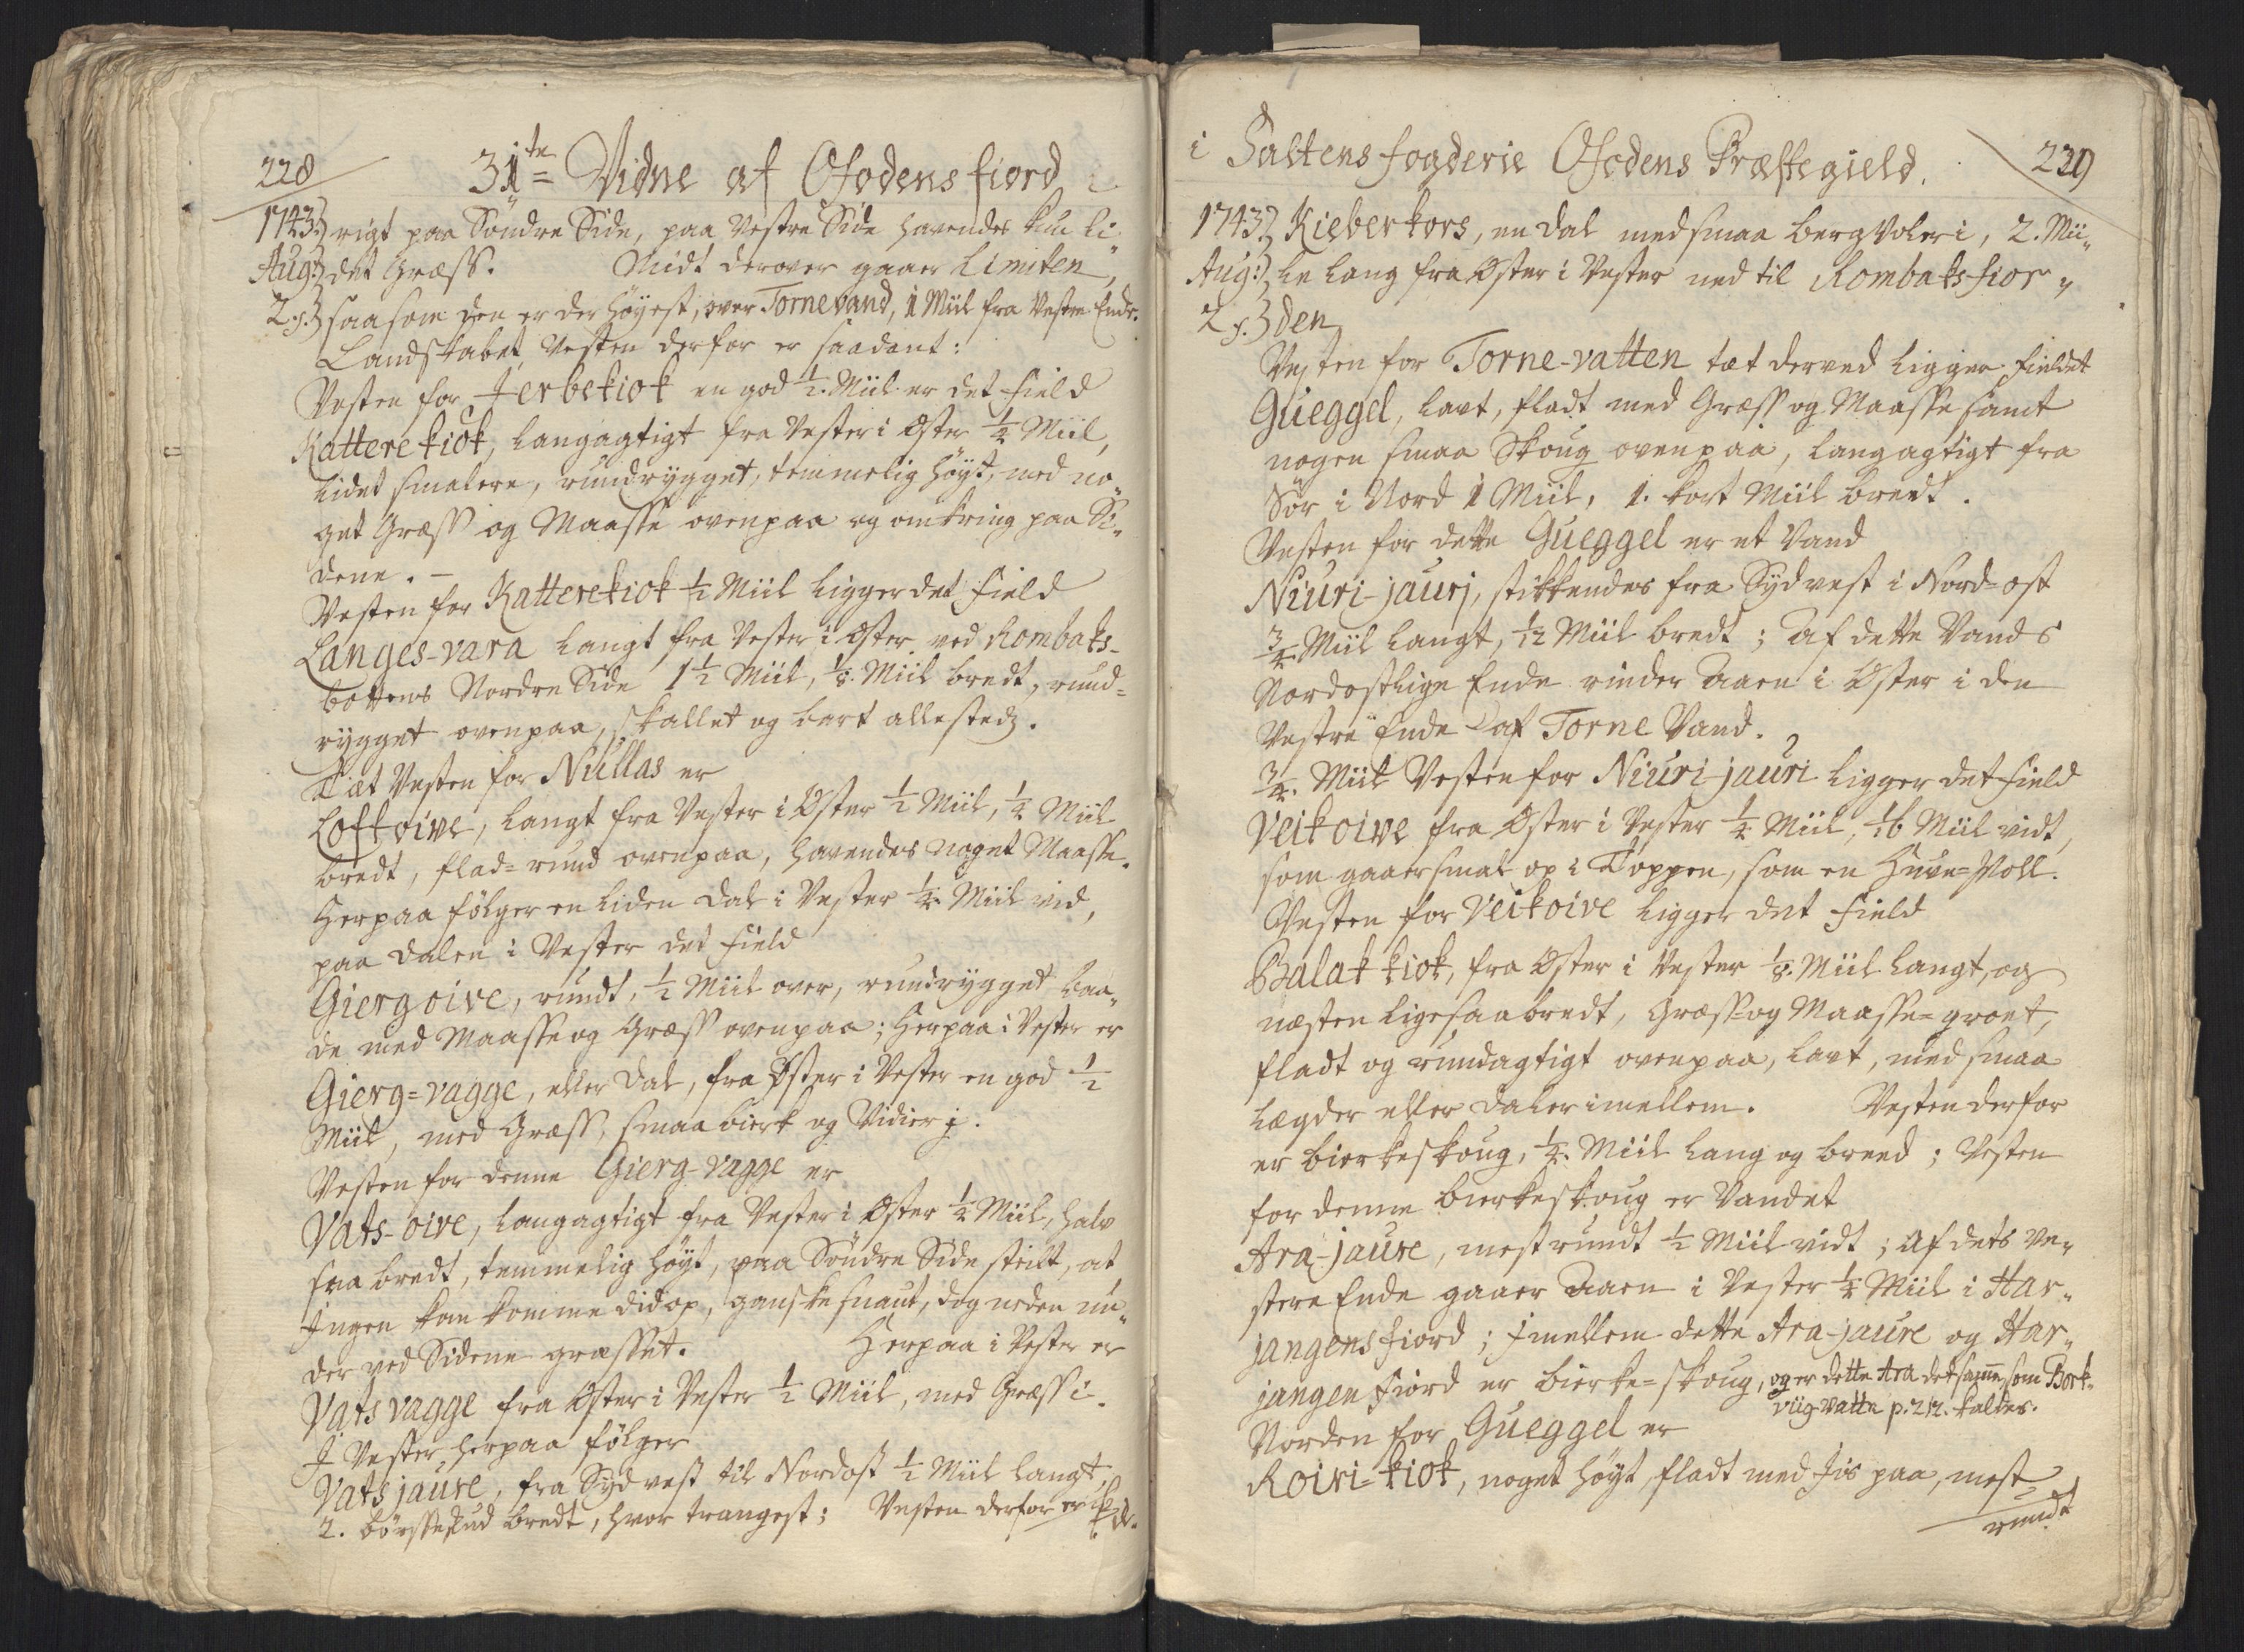 228
31te Vidne af Ofodens fiord
1743. rigt paa Söndre Side, paa Vestre Side havendes kun li-
Aug: det Græss. Midt derover gaaer Limiten,
2 s. saasom den er der höyest, over Tornevand, 1 Miil fra Vestre Ende.
Landskabet Vesten derfor er saadant:
Vesten for Jerbekiok en god 1/2 Miil er det Field
Katterekiok, langagtigt fra Vester i Øster 1/4 Miil,
lidet smalere, rundrygget, temmelig höyt, med no-
get Græss og Maasse ovenpaa og omkring paa Si-
dene. -
Vesten for Katterekiok 1/2 Miil ligger det Field
Langes-vara langt fra Vester i Øster ved Rombaks-
bottens Nordre Side 1 1/2 Miil, 1/8 Miil bredt, rund-
rygget ovenpaa, skallet og bart allestedz.
Tæt Vesten for Niullas er
Loftoive, langt fra Vester i Øster 1/2 Miil, 1/4 Miil
bredt, flad=rund ovenpaa, havendes noget Maasse.
Herpaa fölger en liden Dal i Vester 1/4 Miil vid,
paa Dalen i Vester det Field
Giergoive, rundt, 1/2 Miil over, rundrygget baa-
de med Maasse og Græss ovenpaa; Herpaa i Vester er
Gierg=vagge, eller Dal, fra Øster i Vester en god 1/2
Miil, med Græss, smaa birk og Vidier j.
Vesten for denne Gierg-vagge er
Vats-oive, langagtigt fra Vester i Øster 1/4 Miil, halv
saa bredt, temmelig höyt, paa Söndre Side steilt, at
Ingen kan komme did op, ganske snaut, dog neden un-
der ved Sidene græsset. Herpaa i Vester er
Vatsvagge fra Øster i Vester 1/2 Miil, med Græss i.
I Vester herpaa fölger
Vatsjaure, fra Sydvest til Nordost 1/2 Miil langt,
2. börsseskud bredt, hvor trangest; Vesten derfor er
i Saltens fogderie Ofodens Præstegield.
229
1743. Kieberkors, en Dal med smaa berg Voler i, 2. Mii-
Aug: le lang fra Øster i Vester ned til Rombaks fior-
2 s. den
Vesten for Torne-vatten tæt derved ligger Fieldet
Gueggel, lavt, fladt med Græss og Maasse samt
nogen smaa Skoug ovenpaa, langagtigt fra
Sör i Nord 1 Miil, 1. kort Miil bredt.
Vesten for dette Gueggel er et Vand
Niuri-jaurj, stikkendes fra Sydvest i Nord=ost
3/4 Miil langt, 1/12 Miil bredt; Af dette Vands
Nordostlige Ende rinder Aaen i Øster i den
Vestre Ende af Torne Vand.
3/4 Miil Vesten for Niuri-jauri ligger det Field
Veikoive fra Øster i Vester 1/4 Miil, 1/16 Miil vidt,
som gaaer smal op i Toppen, som en Huve=Poll.
Vesten for Veikoive ligger det Field
Balak kiok, fra Øster i Vester 1/8 Miil langt, og
næsten ligesaa bredt, Græss= og Maasse=groet,
fladt og rundagtigt ovenpaa, lavt, med smaa
Lægder eller Daler imellem. Vesten derfor
er birkeskoug, 1/4 Miil lang og breed; Vesten
for denne birkeskoug er Vandet
Ara-jaure, mest rundt 1/2 Miil vidt; Af dets Ve-
stere Ende gaaer Aaen i Vester 1/4 Miil i Har-
jangens fiord; Imellem dette Ara-jaure og Har-
jangen fiord er birke=skoug, og er dette Ara det samme som Bork-
viig-vatte p. 212. kaldes.
Norden for Gueggel er
Roivi=kiok, noget höyt, fladt med Iis paa, mest
rundt